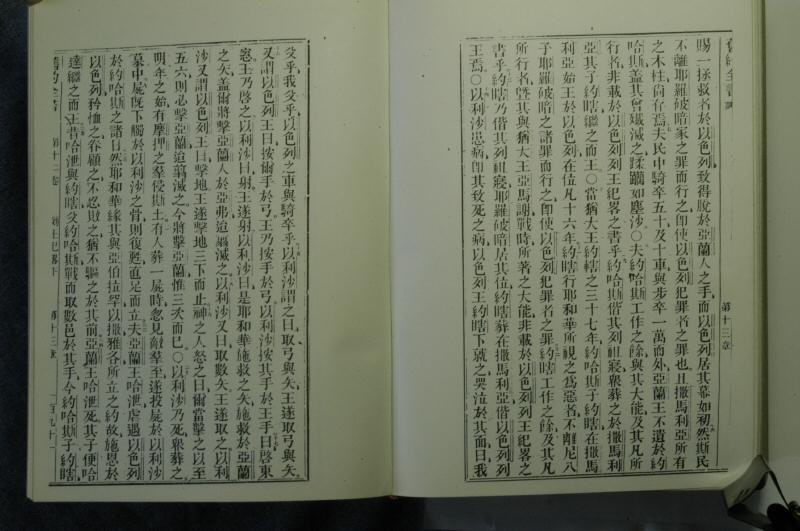 舊約全書
第十三章
賜一拯救者於以色列致得脫於亞蘭人之手而以色列居其幕如初然斯民
不離耶羅破暗家之罪而行之卽使以色列犯罪者之罪也且撒馬利亞所有
之木柱尙存焉夫民中騎卒五十及十車與步卒一萬而外亞蘭王不遺於約
哈斯蓋其會殲滅之蹂躪如塵沙○夫約哈斯工作之餘與其大能及其凡所
行者非載於以色列列王紀畧之書乎約哈斯偕其列祖寢衆葬之於撒馬利
亞其子約轄繼之而王○當猶大王約轄之三十七年約哈斯子約轄在撒馬
利亞始王於以色列在位凡十六年約轄行耶和華所視之爲惡者不離尼八
子耶羅破暗之諸罪而行之卽使以色列犯罪者之罪約轄工作之餘及其凡
所行者曁其與猶大王亞馬謝戰時所著之大能非載於以色列列王紀畧之
書乎約轄乃偕其列祖寢耶羅破暗居其位約轄葬在撒馬利亞偕以色列列
王焉○以利沙患病卽其致死之病以色列王約轄下就之哭泣於其面曰我
父乎我父乎以色列之車與騎卒乎以利沙謂之曰取弓與矢王遂取弓與矢
又謂以色列王曰按爾手於弓王乃按手於弓以利沙按其手於王手曰啓東
窓王乃啓之以利沙曰射王遂射以利沙曰是耶和華施救之矢施救於亞蘭
之矢蓋爾將擊亞蘭人於亞弗迨殲滅之以利沙又曰取數矢王遂取之以利
沙又謂以色列王曰擊地王遂擊地三下而止神之人怒之曰爾當擊之以至
五六則必擊亞蘭迨殲滅之今將擊亞蘭惟三次而已○以利沙乃死衆葬之
明年之始有摩押之羣侵斯土有人葬一屍時忽見敵羣至遂投屍於以利沙
墓中屍旣下觸於以利沙之骨則復甦直足而立夫亞蘭王哈泄虐遇以色列
於約哈斯之諸日然耶和華緣其與亞伯拉罕以撒雅各所立之約故施恩於
以色列矜恤之眷顧之不忍敗之猶不驅之於其前亞蘭王哈泄死其子便哈
達繼之而王昔哈泄與約轄父約哈斯戰而取數邑於其手今約哈斯子約轄
舊約全書
第十二卷
列王紀畧下
第十三章
一百九十一